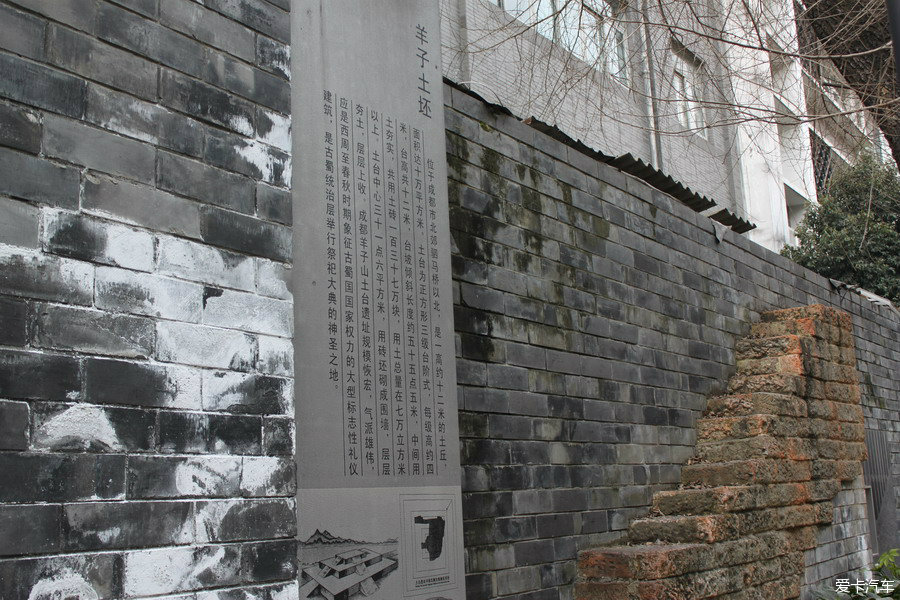 羊子土坯
位于成都市北郊驷马桥以北，是一高约十二米的土丘，
面积达十万平方米，土台为正方形三级台阶式，每级高约四
米，台高共十二米，台坡倾斜长度约五十五点五米，中间用
土夯实，共用土砖一百三十七万块，用土总量在七万立方米
以上，土台中心三十一点六平方米，用砖坯砌成围墙，层层
夯土，层层上收，成都羊子山土台遗址规模恢宏，气派雄伟，
应是西周至春秋时期象征古蜀国国家权力的大型标志性礼仪
建筑，是古蜀统治层举行祭祀大典的神圣之地。
爱卡汽车